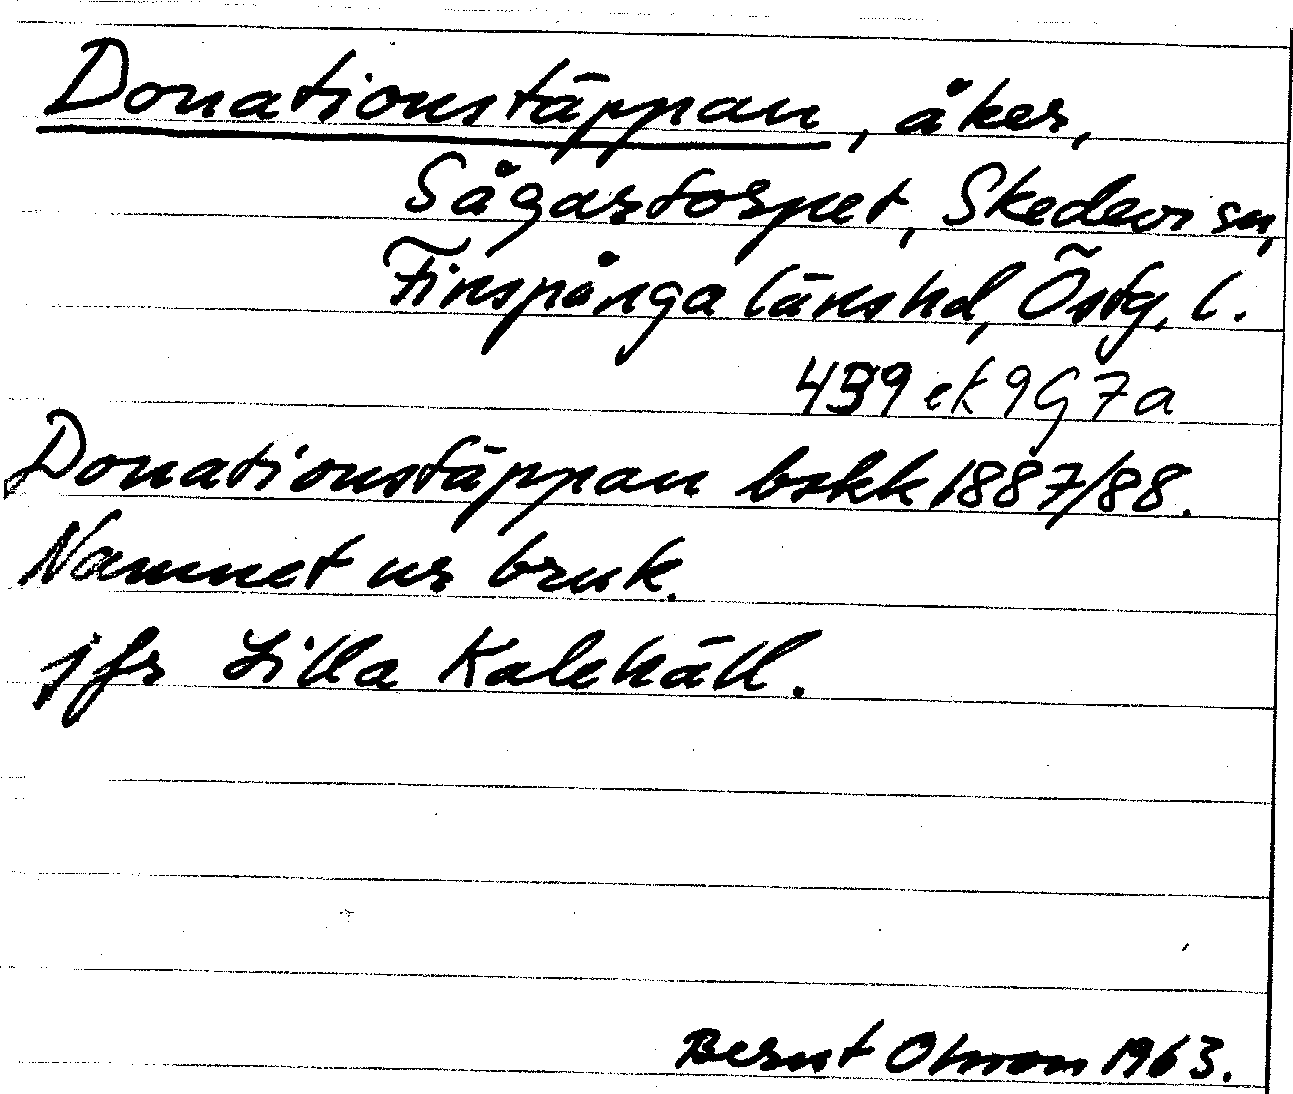 Donationstäppan, åker,
Sågartorpet, Skedevi sn,
Finspånga länshd, Östg. l.
439 ek 9G7a
Donationstäppan bskk 1887/88.
Namnet ur bruk.
jfr Lilla Kalehäll.
Bernt Olsson 1963.